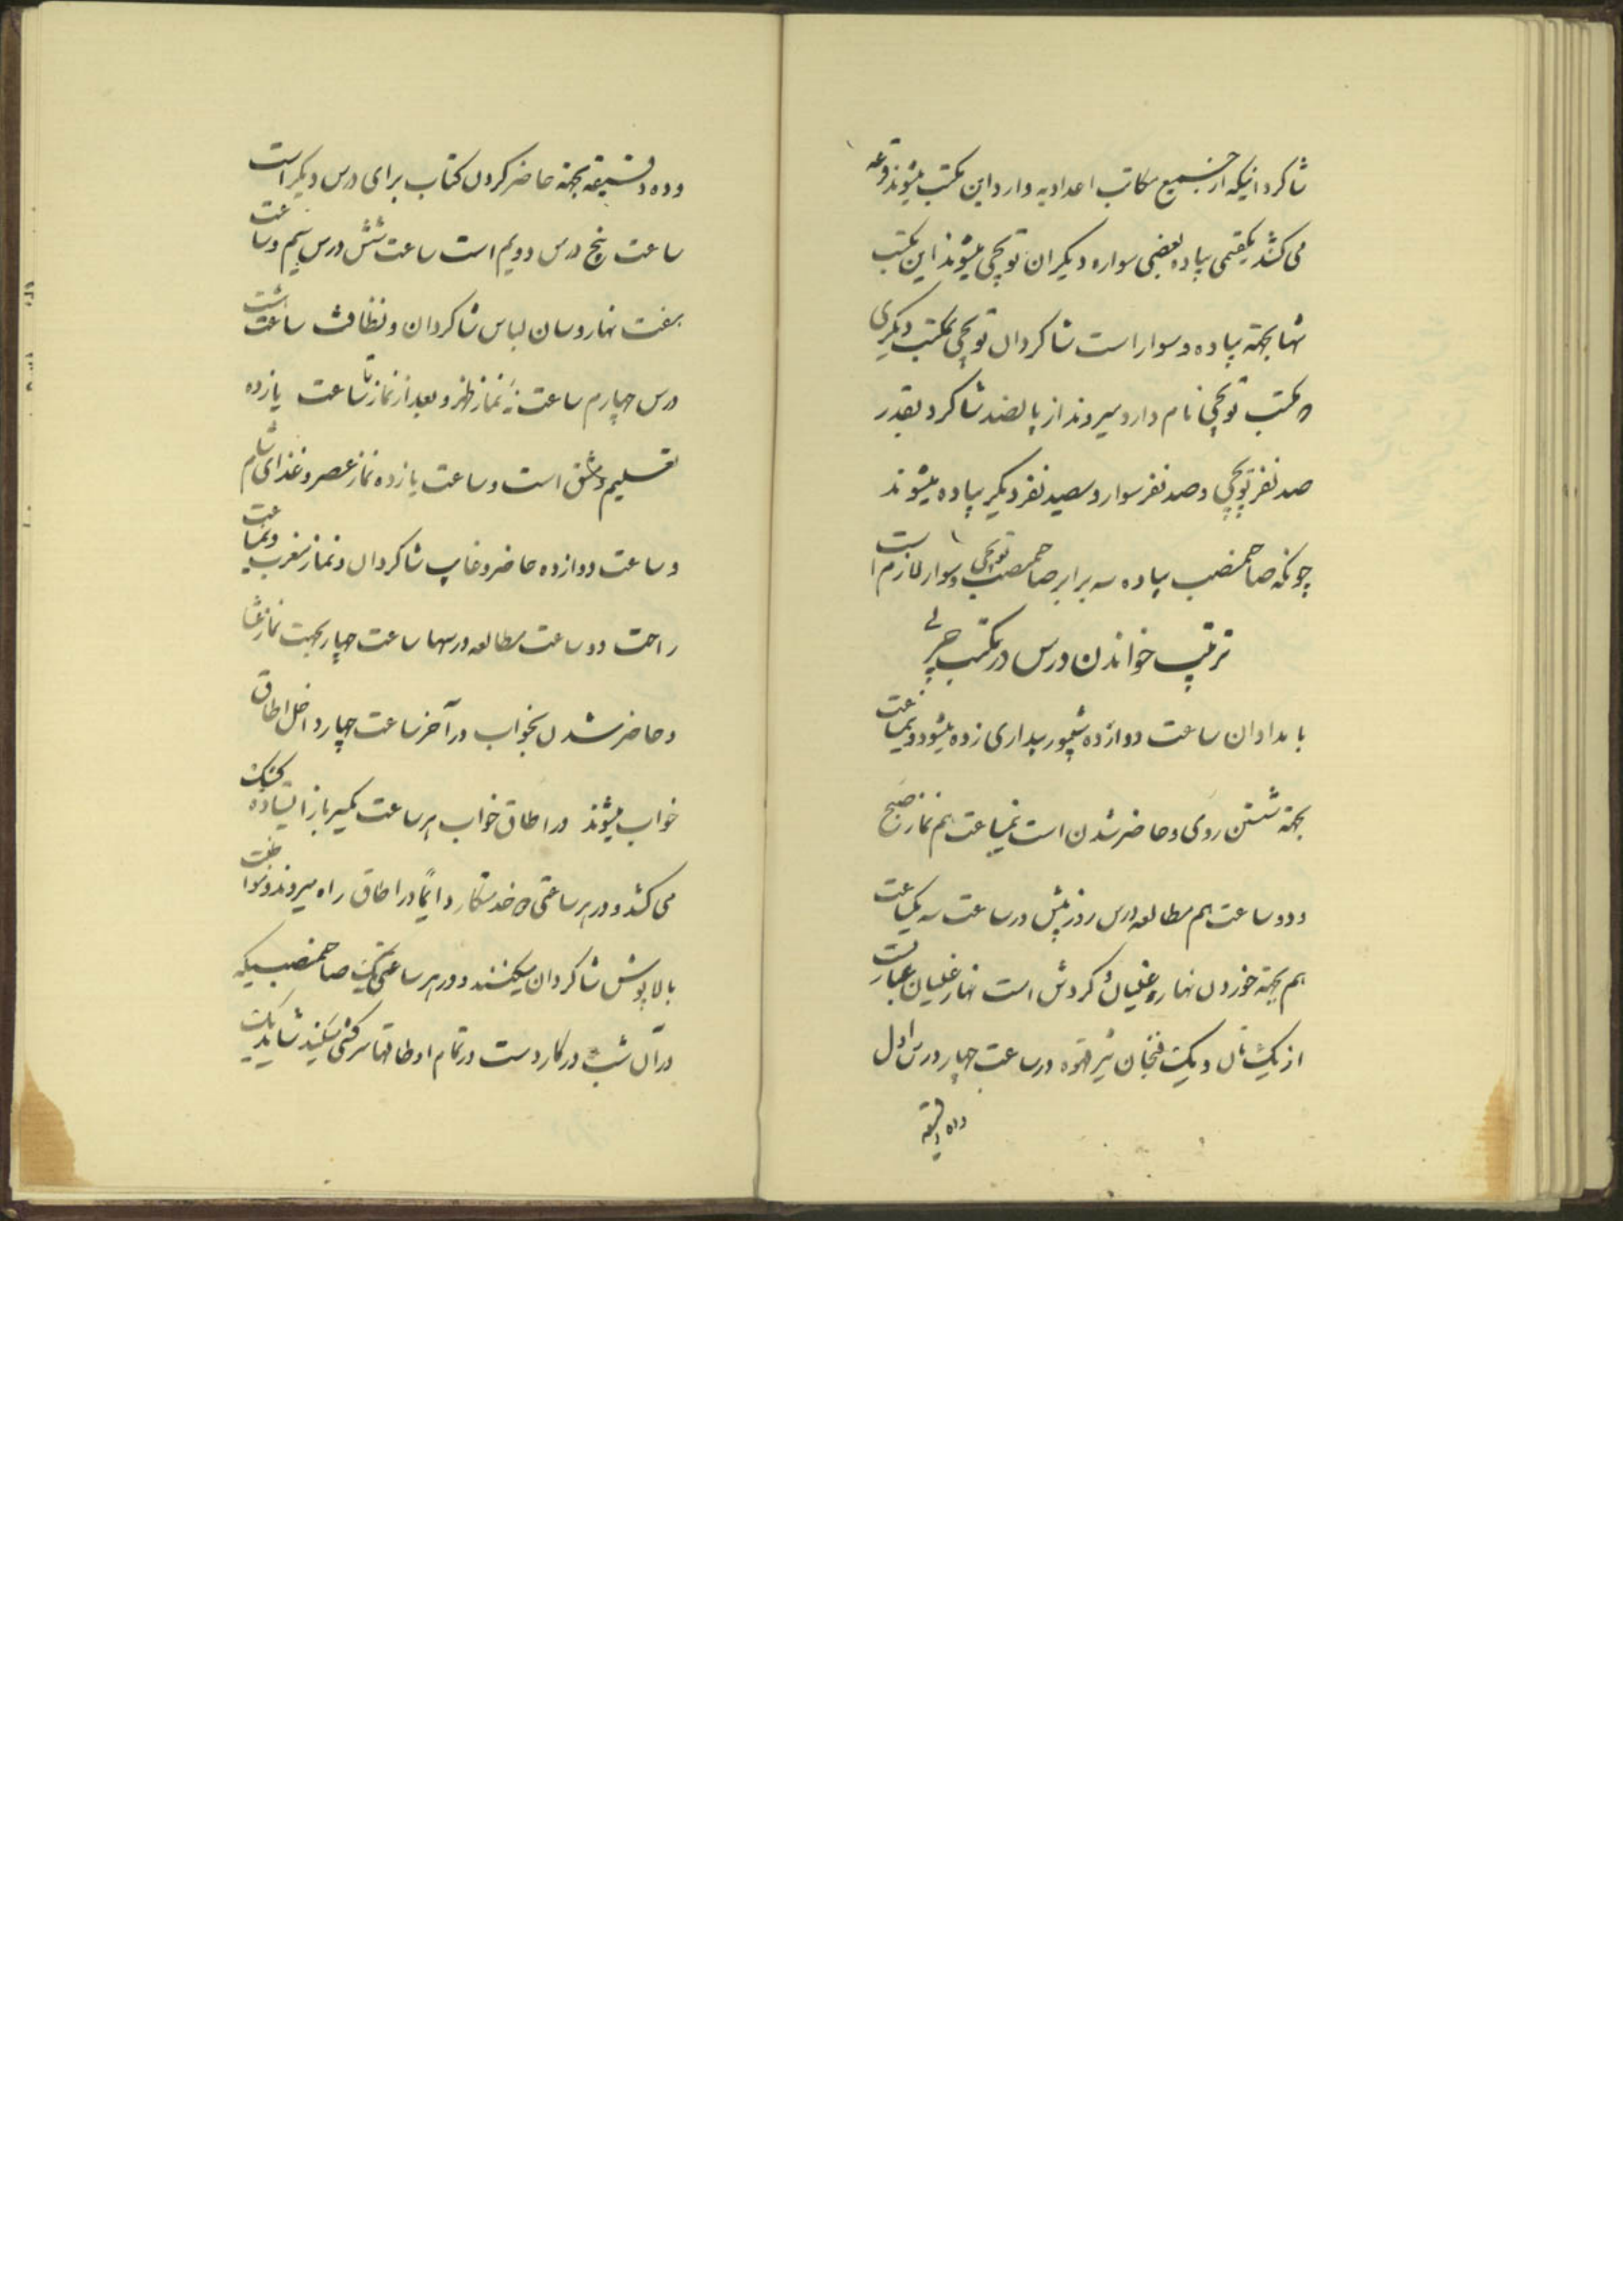 شاکردانیکه از جمیع مکاتب اعدادیه وارد این مکتب میشوند قرعه
می کشند یکقسمی پیاده بعضی سواره دیکران توپچی میشوند این مکتب
تنها بجهته پیاده و سوار است شاکردان توپچی بمکتب دیکری
که مکتب توپچی نام دارد میروند از پانصد شاکرد بقدر
صد نفر توپچی و صد نفر سوار و سیصد نفر دیکر پیاده میشوند
چونکه صاحبمنصب پیاده سه برابر صاحبمنصب توپچی و سوار لازم است
ترتیب خواندن درس در مکتب حربی
بامدادان ساعت دوازده شیپور بیداری زده میشود و نیمساعت
بجهته شستن روی و حاضر شدن است نیمساعت هم نماز صبح
و دو ساعت هم مطالعه درس روز پیش در ساعت سه یکساعت
هم بجهته خوردن نهار و غلیان و کردش است نهار غلیان عبارت
از یک نان و یک فنجان شیر قهوه در ساعت چهار درس اول
و ده دقیقه
و ده دقیقه بجهته حاضر کردن کتاب برای درس دیکر است
ساعت پنج درس دویم است ساعت شش درس سیم و ساعت
هفت نهار و سان لباس شاکردان و نظافت ساعت هشت
درس چهارم ساعت نه نماز ظهر و بعد از نماز تا ساعت یازده
تعلیم و مشق است و ساعت یازده نماز عصر و غذای شام
و ساعت دوازده حاضر و غایب شاکردان و نماز مغرب و نیمساعت
راحت دو ساعت مطالعه درسها ساعت چهار بجهت نماز عشا
و حاضر شدن بخواب در آخر ساعت چهار داخل اطاق
خواب میشوند در اطاق خواب هر ساعت یکسرباز ایستاده کشیک
می کشد و در هر ساعتی خدمتکار دایما در اطاق راه میروند و مواظبت
بالاپوش شاکردان میکنند و در هر ساعتی یک صاحبمنصبیکه
در آن شب در کار دست در تمام اوطاقها سرکشی میکند شاید یک